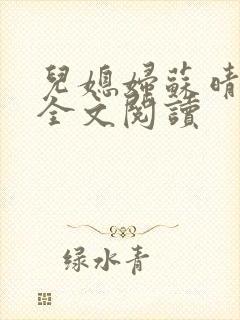 兒媳婦蘇晴
全文閱讀
绿水青